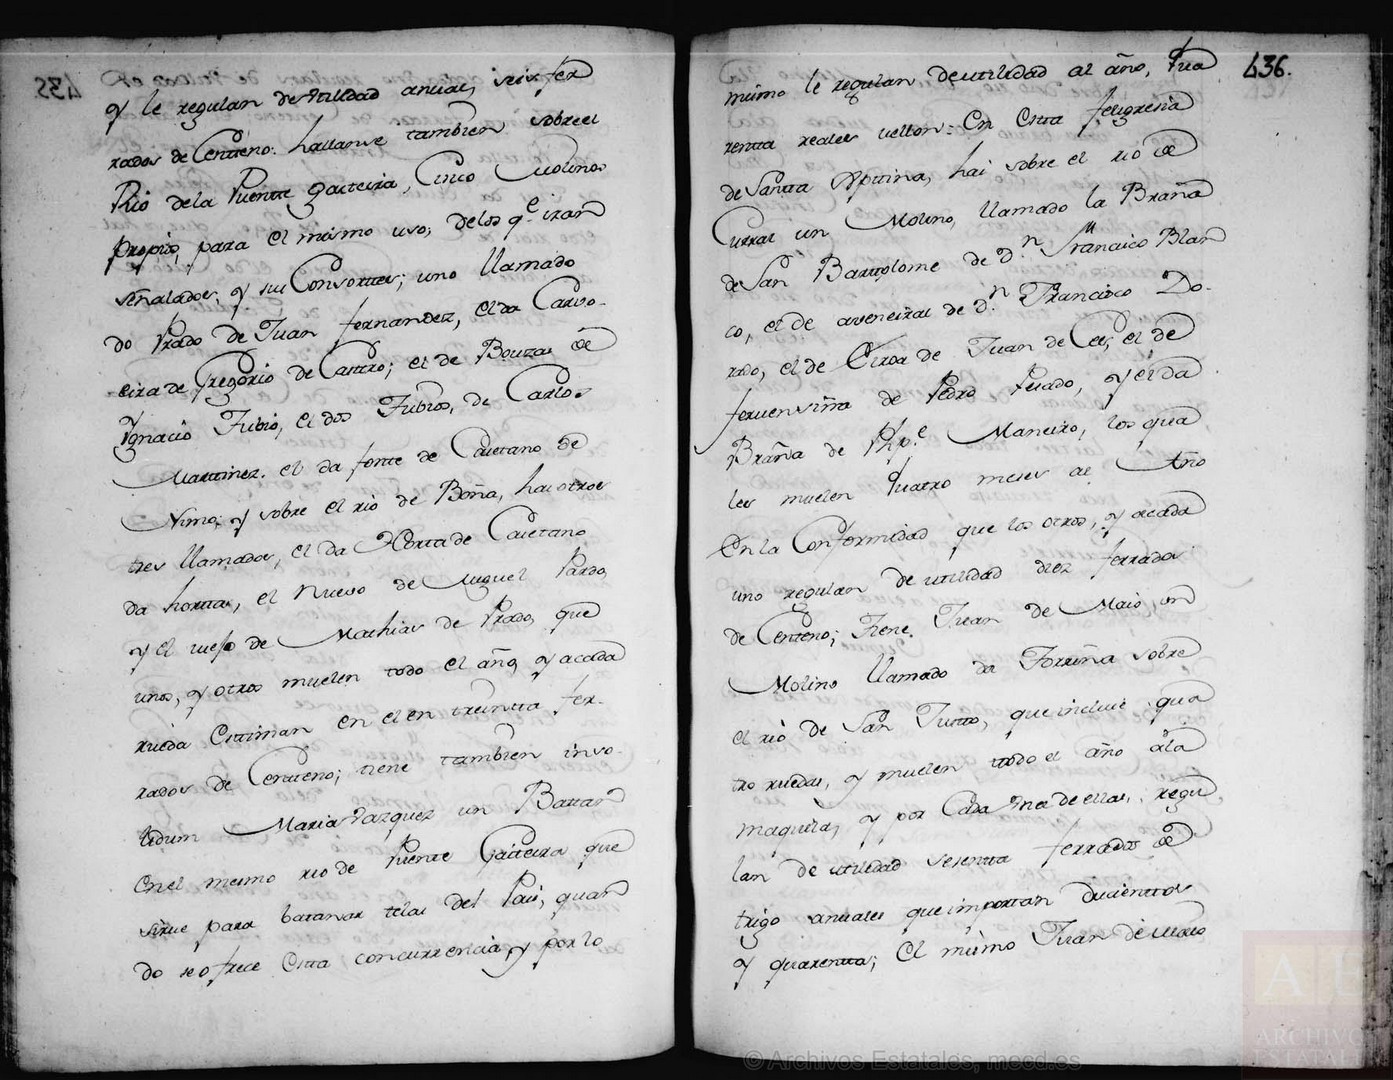 y le regulan de Vtilidad anual, seis fer
rados de Centeno: hallanse tambien sobre el
Rio de la Puente Gaiteira, Cinco Molinos
propios, para el mismo uso, delos q.e iran
señalados, y sus Consortes; uno llamado
do Prado de Juan fernandez, el da Carvo-
eira de Gregorio de Castro; el de Bouza de
Ygnacio Jubio, el dos Jubios, de Carlos
Martinez. el da fonte de Caietano de
Nimo; y sobre el rio de Boña, hai otros
tres llamados, el da Horta de Caietano
da horta, el Nuevo de Miguel Pardo,
y el viejo de Mathias de Prado, que
unos, y otros muelen todo el año, y acada
rueda Estiman en el en treintta fer-
rados de Centeno; tiene tambien inso-
lidum Maria Vazquez un Battan
en el mismo rio de Puente Gaiteira que
sirve para batanar telas del Pais, quan
do se ofrece Esta concurrencia, y por lo
436.
mismo le regulan de utilidad al año, trei
rentta reales vellon: En Esta feligresia
de Santta Xpttina, hai sobre el rio de
Curras un Molino, llamado la Braña
de San Barttolome de D.n Francisco Blan
co, el de aveneiras de D.n Francisco Do-
rado, el de Eiroa de Juan de Cee, el de
fervensiña de Pedro Posado, y el da
Braña de Phpe. Maneiro, los qua
les muelen Quatro meses al Año
En la Conformidad que los otros, y acada
uno regulan de utilidad diez ferrados
de Centeno; Tiene Juan de Maio, un
Molino llamado da Torriña sobre
el rio de San Justto, que incluie qua
tro ruedas, y muelen todo el año ala
maquila, y por Cada Una de ellas, regu
lan de utilidad sesentta ferrados de
trigo anuales que importan Ducienttos
y quarentta; El mismo Juan de Maio
© Archivos Estatales, mecd.es
AE
ARCHIVOS
ESTATALES